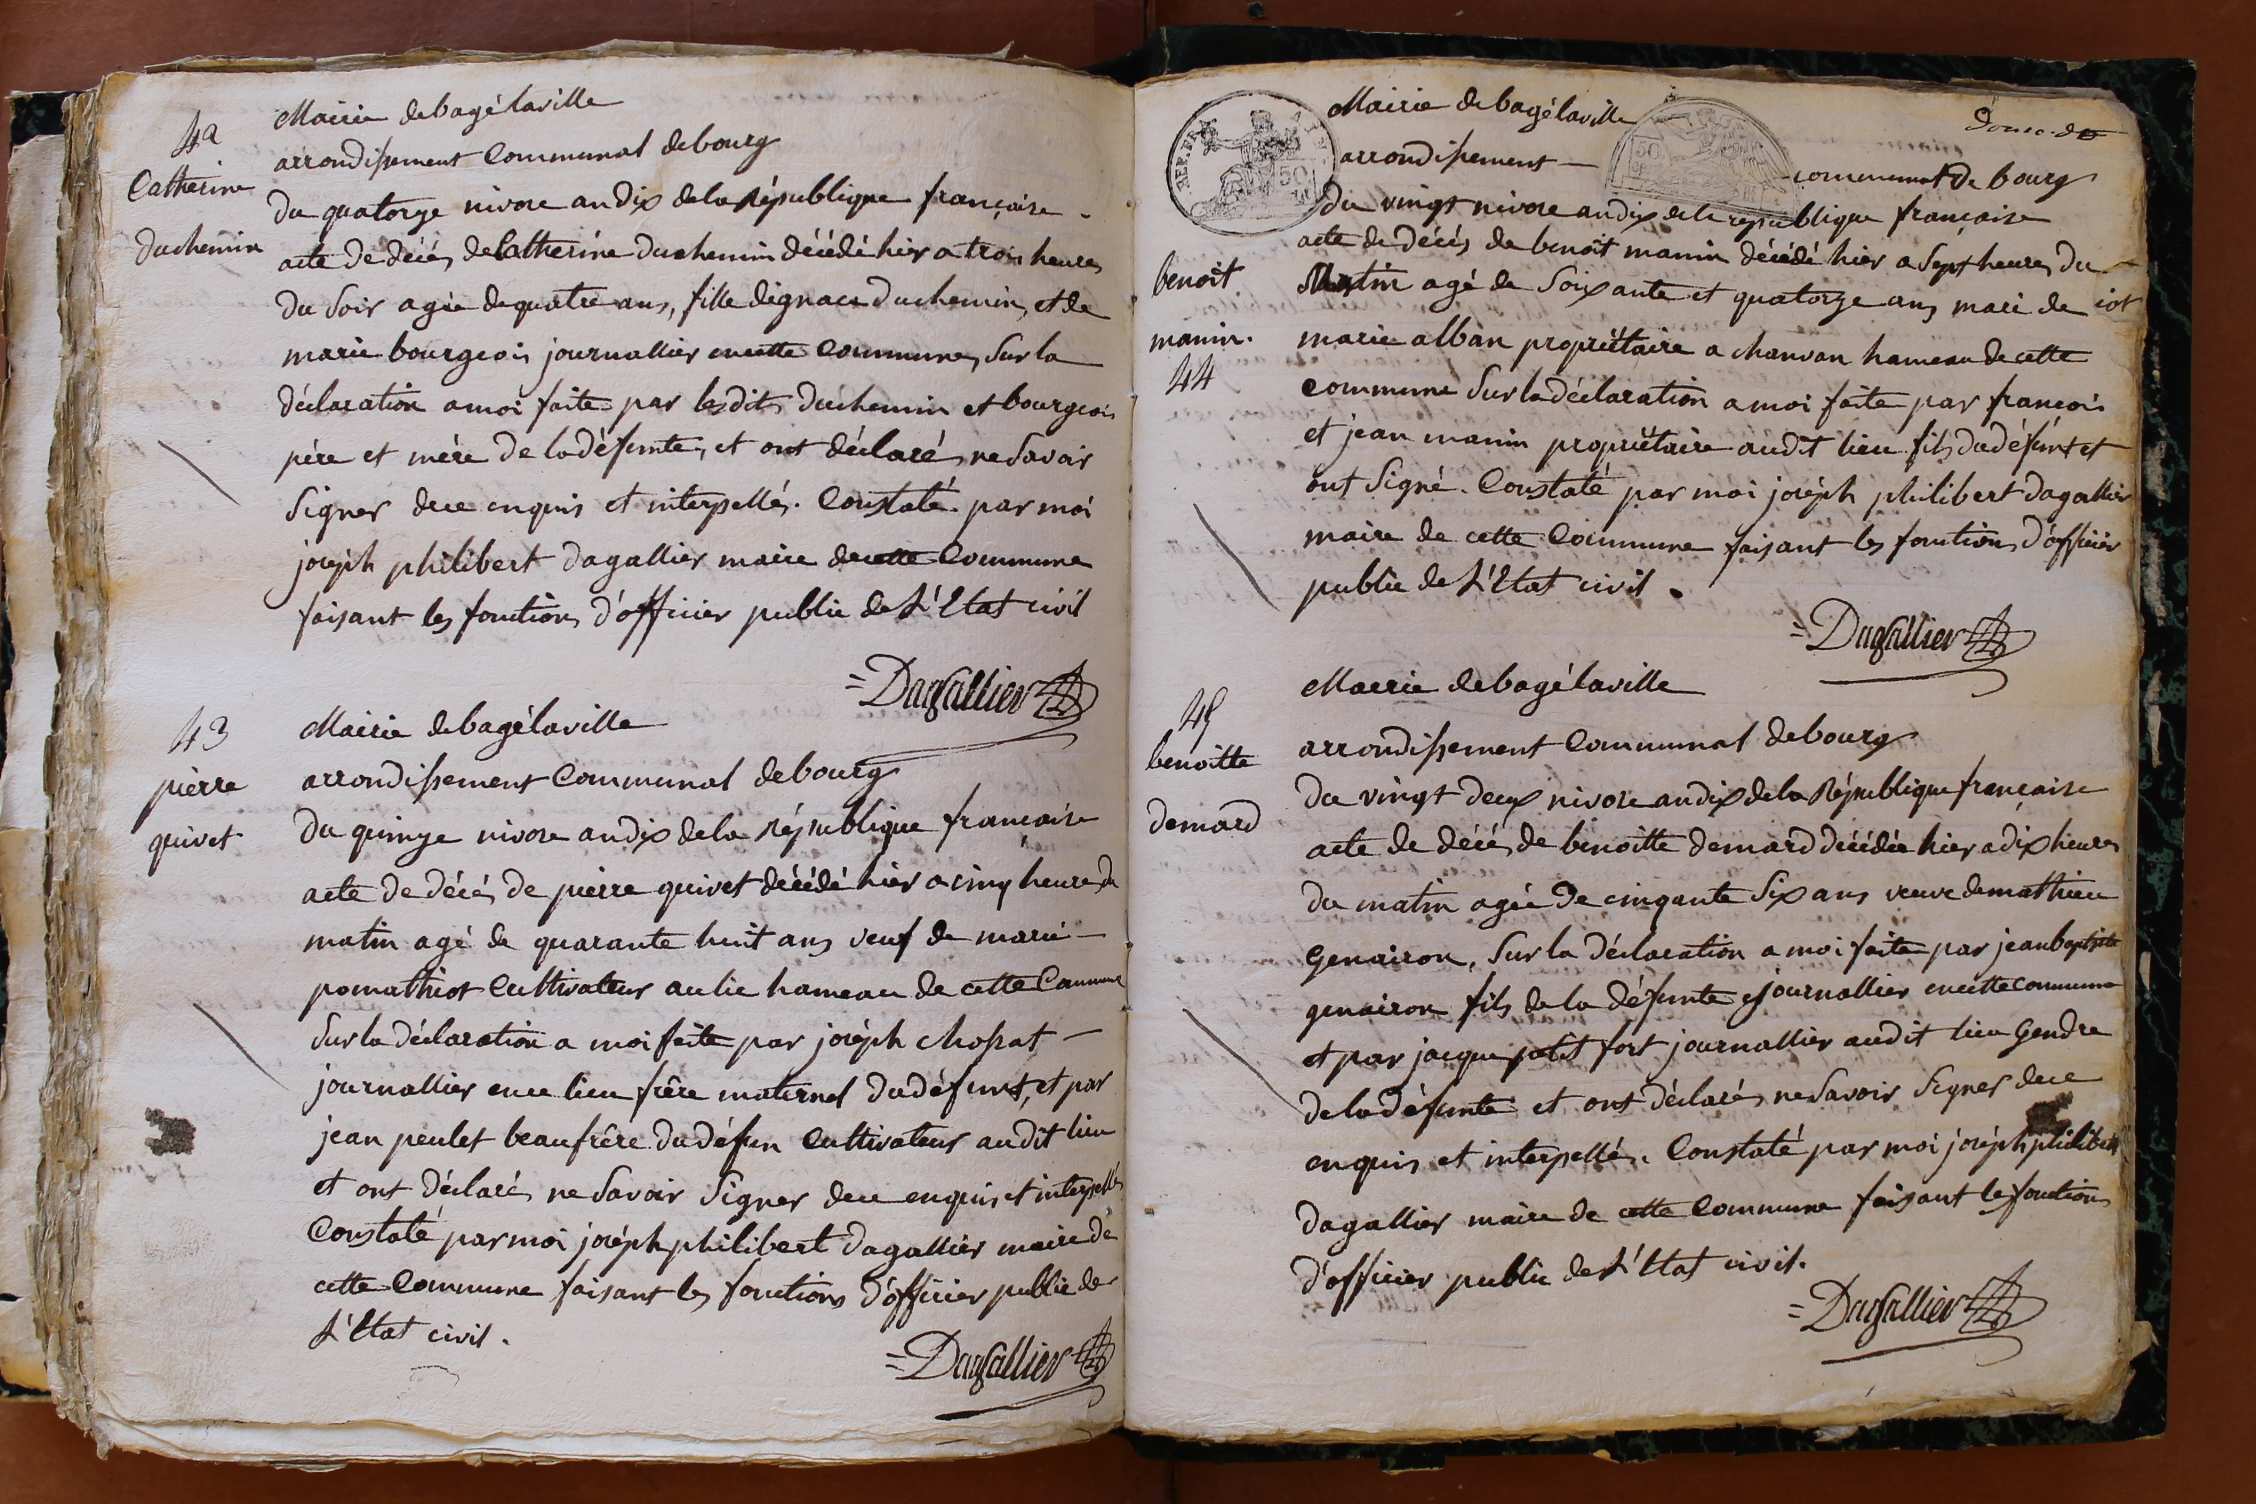 42
Catherine
duchemin
Mairie de bagé la ville
arrondissement Communal de bourg
du quatorze nivose an dix de la République française.
acte de décés de Catherine duchemin décédé hier a trois heures
du soir agée de quatre ans, fille dignace duchemin, et de
marie bourgeois journallier en cette Commune, Sur la
déclaration a moi faite par lesdits duchemin et bourgeois
pére et mére de la défunte, et ont déclaré ne Savoir
Signer de ce enquis et interpellés. Constaté par moi
joséph philibert dagallier maire de cette Commune
faisant les fonctions d'officier public de L'Etat civil
=Dagallier
43
pierre
quivet
Mairie de bagé la ville
arrondissement Communal de bourg
du quinze nivose an dix de la République française
acte de décés de piérre quivet décédé hier a cinq heures du
matin agé de quarante huit ans veuf de marie
pomathiot Cultivateur au lie hameau de cette Commune
Sur la déclaration a moi faite par joséph chossat
journallier en ce lieu frére maternel du défunt, et par
jean peulet beaufrére du défun Cultivateur au dit lieu
et ont déclaré ne Savoir Signer de ce enquis et interpellés
Constaté par moi joséph philibert dagallier maire de
cette Commune faisant les fonctions d'officier public de
L'Etat civil.
=Dagallier
REP. FRA.
50
50
Mairie de bagé la ville
arrondissement
communal de bourg
benoit
manin.
44
du vingt nivose an dix de la republique française
acte de décés de benoit manin décédé hier a Sept heures du
Matin agé de Soixante et quatorze ans mari de
marie alban propriétaire a chanvan hameau de cette
commune Sur la déclaration a moi faite par francois
et jean manin propriétaire audit lieu fils du défunt et
ont Signé. Constaté par moi joséph philibert dagallier
maire de cette Commune faisant les fonctions d'officier
public de L'Etat civil.
=Dagallier
45
benoitte
demard
Mairie de bagé la ville
arrondissement Communal de bourg
du vingt deux nivose an dix de la République française
acte de décés de benoitte demard décédée hier a dix heures
du matin agée de cinqante Six ans veuve de mathieu
Genairon, Sur la déclaration a moi faite par jean baptiste
genairon fils de la défunte journallier en cette commune
et par jacque petit fort journallier audit lieu Gendre
de la défunte et ont déclaré ne Savoir Signer de ce
enquis et interpellés. Constaté par moi joséph philibert
dagallier maire de cette Commune faisant les fonctions
d'officier public de L'Etat civil.
=Dagallier